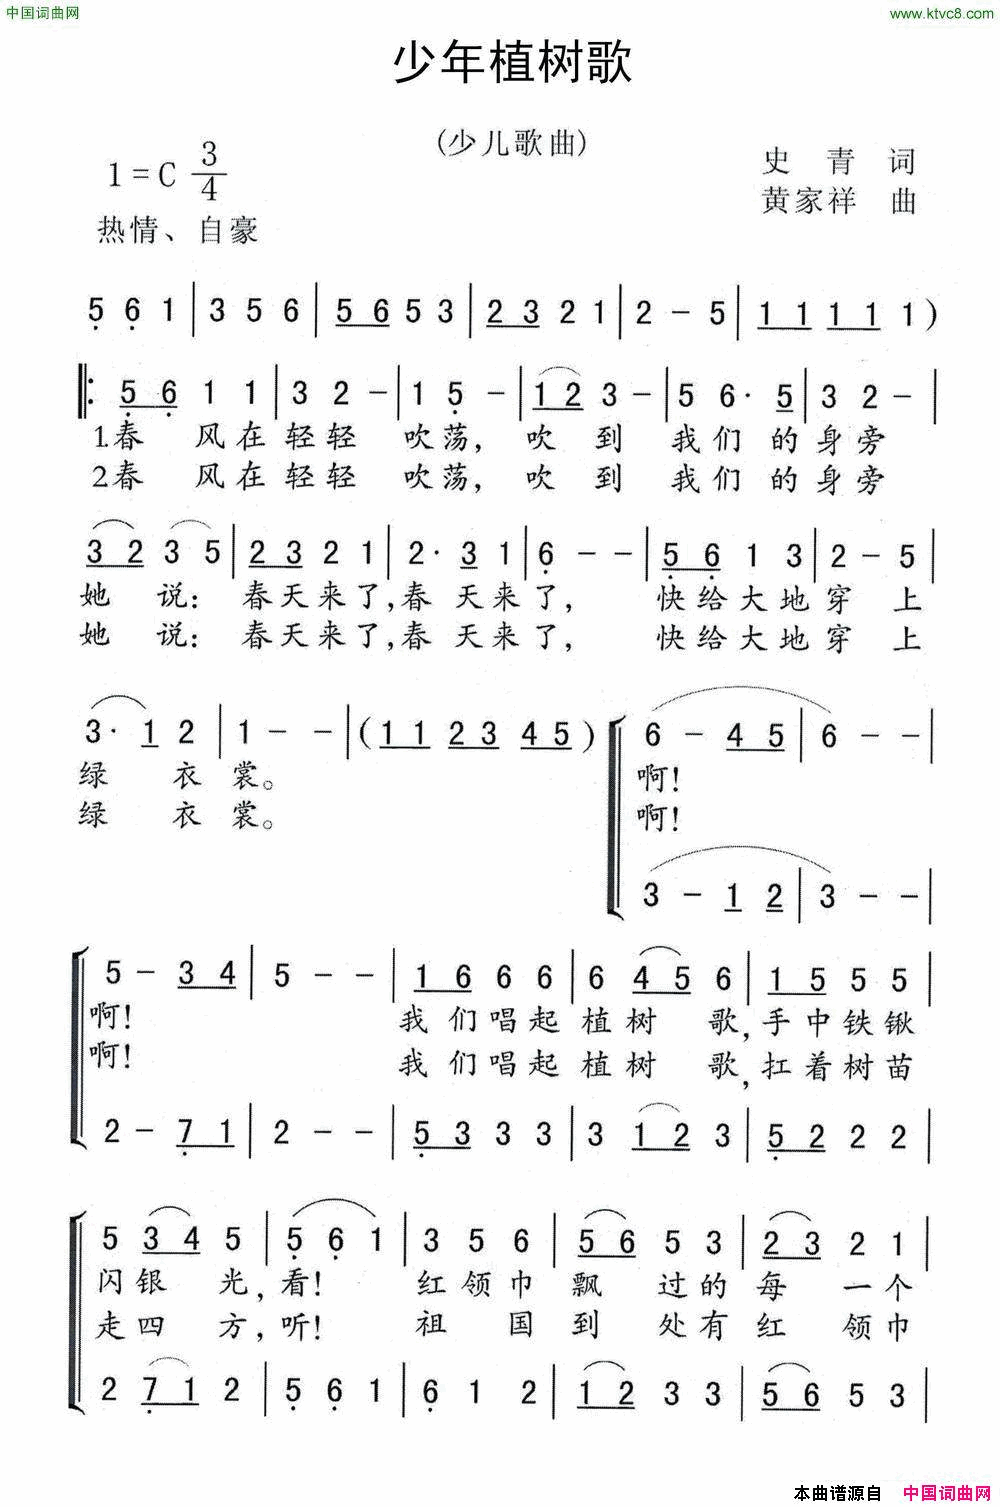 中国词曲网 www.ktvc8.com
少年植树歌
(少儿歌曲)
1=C 3/4
史 青 词
黄家祥 曲
热情、自豪
5 6 1 | 3 5 6 | 5 6 5 3 | 2 3 2 1 | 2 - 5 | 1 1 1 1 1 )
5 6 1 1 | 3 2 - | 1 5 - | 1 2 3 - | 5 6· 5 | 3 2 - |
1.春 风在轻轻 吹荡，吹 到 我们 的身旁
2春 风在轻轻 吹荡，吹 到 我们 的身旁
3 2 3 5 | 2 3 2 1 | 2· 3 1 | 6 - - | 5 6 1 3 | 2 - 5 |
她 说：春天来了，春 天来了， 快给大地穿 上
她 说：春天来了，春 天来了， 快给大地穿 上
3· 1 2 | 1 - - | ( 1 1 2 3 4 5 ) | 6 - 4 5 | 6 - - |
绿 衣裳。 啊！
绿 衣裳。 啊！
3 - 1 2 | 3 - - |
5 - 3 4 | 5 - - | 1 6 6 6 | 6 4 5 6 | 1 5 5 5 |
啊！ 我们唱起植树 歌，手中铁锹
啊！ 我们唱起植树 歌，扛着树苗
2 - 7 1 | 2 - - | 5 3 3 3 | 3 1 2 3 | 5 2 2 2 |
5 3 4 5 | 5 6 1 | 3 5 6 | 5 6 5 3 | 2 3 2 1 |
闪银 光，看！ 红领巾 飘 过的每 一个
走四 方，听！ 祖 国到 处有红 领巾
2 7 1 2 | 5 6 1 | 6 1 2 | 1 2 3 3 | 5 6 5 3 |
本曲谱源自 中国词曲网